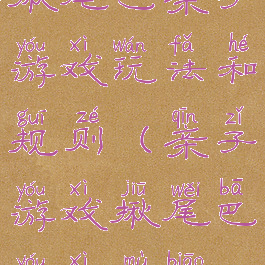 yóu xì wán fǎ hé
游戏玩法和
guī zé qīn zǐ
规则(亲子
yóu xì jiū wěi bā
游戏揪尾巴